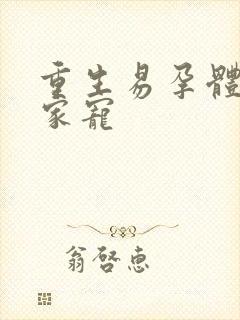 重生易孕體
家寵
翁啓惠